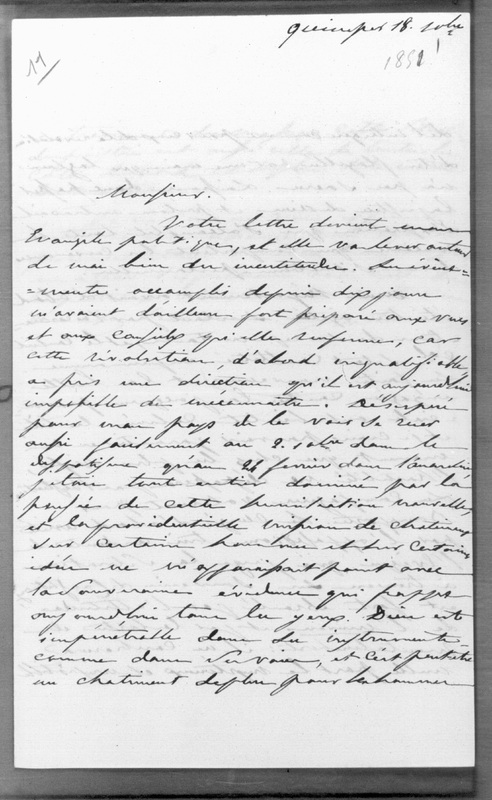 quimper 18. xbre
1851
11
Monsieur.
Votre lettre devient mon
Evangile politique, et elle va lever autour
de moi bien des incertitudes. Les évène-
=ments accomplis depuis dix jours
m'avaient d'ailleurs fort préparé aux vues
et aux conseils qu'elle renferme, car
cette révolution, d'abord inqualifiable,
a pris une direction qu'il est aujourd'hui
impossible de méconnaître. Désespéré
pour mon pays de le voir se ruer
aussi facilement au 2. xbre dans le
despotisme, qu'au 24 février dans l'anarchie
j'étais tout entier dominé par la
pensée de cette humiliation nouvelle,
et la providentielle mission de châtiment
sur certains hommes et sur certaines
idées ne m'apparaissait point avec
la souveraine évidence qui frappe
aujourd'hui tous les yeux. Dieu est
impénétrable dans ses instruments
comme dans ses voies, et c'est peut-être
un châtiment de plus pour les hommes